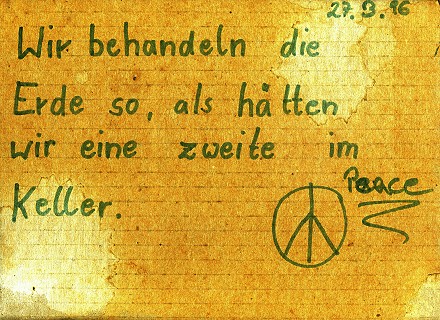 27.3.96
Wir behandeln die
Erde so, als hätten
wir eine zweite im
Keller.
Peace